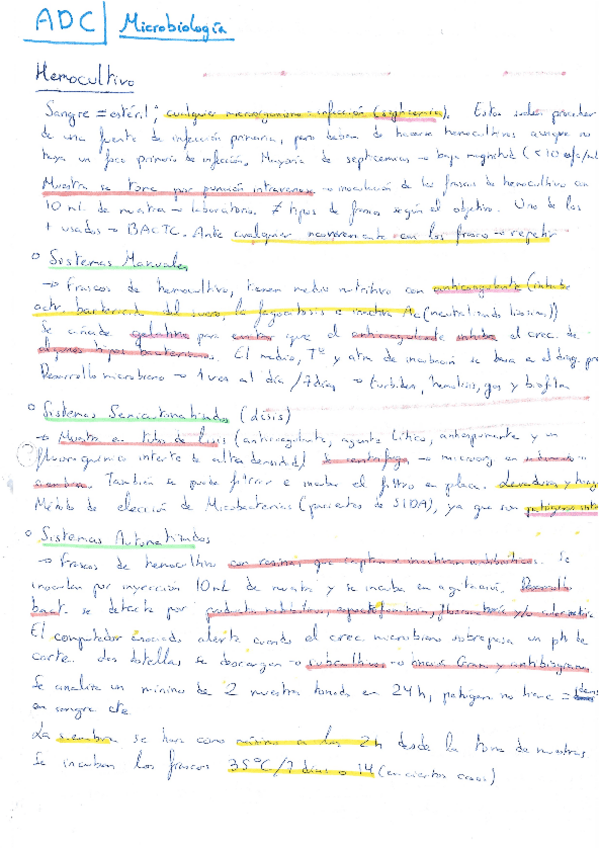 ADC | Microbiología
Hemocultivo
Sangre = estéril; cualquier microorganismo = infección (septicemia). Estos suelen proceder
de una fuente de infección primaria, pero deben de hacerse hemocultivos aunque no
haya un foco primario de infección. Mayoría de septicemias → baja magnitud (<10
Muestra se toma por punción intravenosa → inoculación de los frascos de hemocultivo con
10 mL de muestra → laboratorio. ≠ tipos de frascos según el objetivo. Uno de los
+ usados → BACTC. Ante cualquier inconveniente con los frascos → repetir
Sistemas Manuales
→ Frascos de hemocultivo, tienen medio nutritivo con anticoagulante (inhibe
act. bactericida del suero, la fagocitosis e inactiva Ac (neutralizando lisosimas))
Se añade gelatina para evitar que el anticoagulante inhiba el crec. de
algunos tipos bacterianos. El medio, Tª y atm de incubación se basa en el diag.
Desarrollo microbiano → 1 vez al día / 7 días → turbidez, hemolisis, gas y biofilm
Sistemas Semiautomatizados (lisis)
→ Muestra en tubos de lisis (anticoagulante, agente lítico, antiespumante y un
fluoroquímico inerte de alta densidad) Se centrifuga → microorg en sedimento →
siembra. También se puede filtrar e incubar el filtro en placa. Levaduras y hongos
Método de elección de Micobacterias (pacientes de SIDA), ya que son patógenos
Sistemas Automatizados
→ Frascos de hemocultivo con resinas que captan e inactivan antibióticos. Se
inoculan por inyección 10mL de muestra y se incuba en agitación. Desarrollo
bact. se detecta por productos metabólicos, espectrofotometría, fluorometría y/o
El computador asociado alerta cuando el crec. microbiano sobrepasa un pto de
corte. Las botellas se descargan → subcultivos → tinción Gram y antibiograma
Se analiza un mínimo de 2 muestras tomadas en 24h, patógeno no tiene =
en sangre cte
La siembra se hace como máximo a las 2h desde la toma de muestras
Se incuban los frascos 35ºC/7 días o 14 (en ciertos casos)